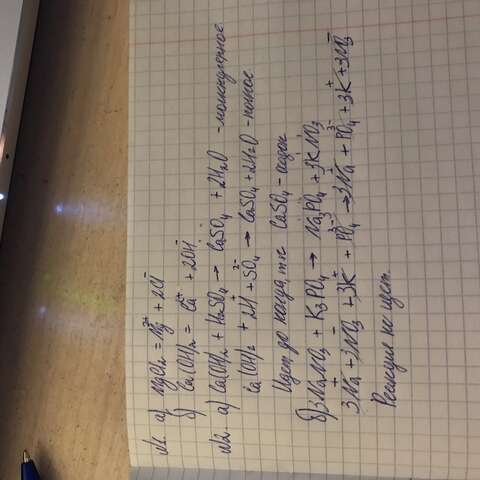 №1. а) MgCl₂ = Mg²⁺ + 2Cl⁻
б) Ca(OH)₂ = Ca²⁺ + 2OH⁻
№2. а) Ca(OH)₂ + H₂SO₄ → CaSO₄ + 2H₂O - молекулярное
Ca(OH)₂ + 2H⁺ + SO₄²⁻ → CaSO₄ + 2H₂O - полное
Идет до конца, т.к CaSO₄ - осадок
б) 3NaNO₃ + K₃PO₄ → Na₃PO₄ + 3KNO₃
3Na⁺ + 3NO₃⁻ + 3K⁺ + PO₄³⁻ → 3Na⁺ + PO₄³⁻ + 3K⁺ + 3NO₃⁻
Реакция не идет.